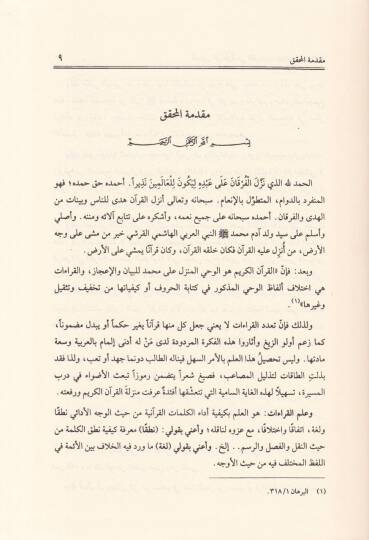 مقدمة المحقق ٩
مقدمة المحقق
بسم الله الرحمن الرحيم
الحمد لله الذي نَزَّلَ الْفُرْقَانَ عَلَى عَبْدِهِ لِيَكُونَ لِلْعَالَمِينَ نَذِيراً. أحمده حق حمده؛ فهو
المنفرد بالدوام، المتطوِّل بالإنعام. سبحانه وتعالى أنزل القرآن هدى للناس وبينات من
الهدى والفرقان. أحمده سبحانه على جميع نعمه، وأشكره على تتابع آلائه ومننه. وأصلي
وأسلم على سيد ولد آدم محمد ﷺ النبي العربي الهاشمي القرشي خير من مشى على وجه
الأرض، من أُنزل عليه القرآن فكان خلقه القرآن، وكان قرآناً يمشي على الأرض.
وبعد: فإنّ «القرآن الكريم هو الوحي المنزل على محمد للبيان والإعجاز، والقراءات
هي اختلاف ألفاظ الوحي المذكور في كتابة الحروف أو كيفياتها من تخفيف وتثقيل
وغيرها»(١).
ولذلك فإنّ تعدد القراءات لا يعني جعل كل منها قرآناً يغير حكماً أو يبدل مضموناً،
كما زعم أولو الزيغ وأثاروا هذه الفكرة المردودة لدى مَنْ له أدنى إلمام بالعربية وسعة
مادتها. وليس تحصيلُ هذا العلم بالأمر السهل فيناله الطالب دونما جهد أو تعب، ولذا فقد
بذلتِ الطاقات لتذليل المصاعب، فصيغ شعراً يتضمن رموزاً تبعث الأضواء في درب
المسيرة، تسهيلاً لهذه الغاية السامية التي تتعشَّقها أفئدةٌ عرفت منزلة القرآن الكريم ورفعته.
وعلم القراءات: هو العلم بكيفية أداء الكلمات القرآنية من حيث الوجه الأدائي نطقًا
ولغة، اتفاقًا واختلافًا، مع عزوه لناقله؛ وأعني بقولي: (نطقًا) معرفة كيفية نطق الكلمة من
حيث النقل والفصل والرسم.. إلخ. وأعني بقولي (لغة) ما ورد فيه الخلاف بين الأئمة في
اللفظ المختلف فيه من حيث الأوجه.
(١) البرهان ٣١٨/١.